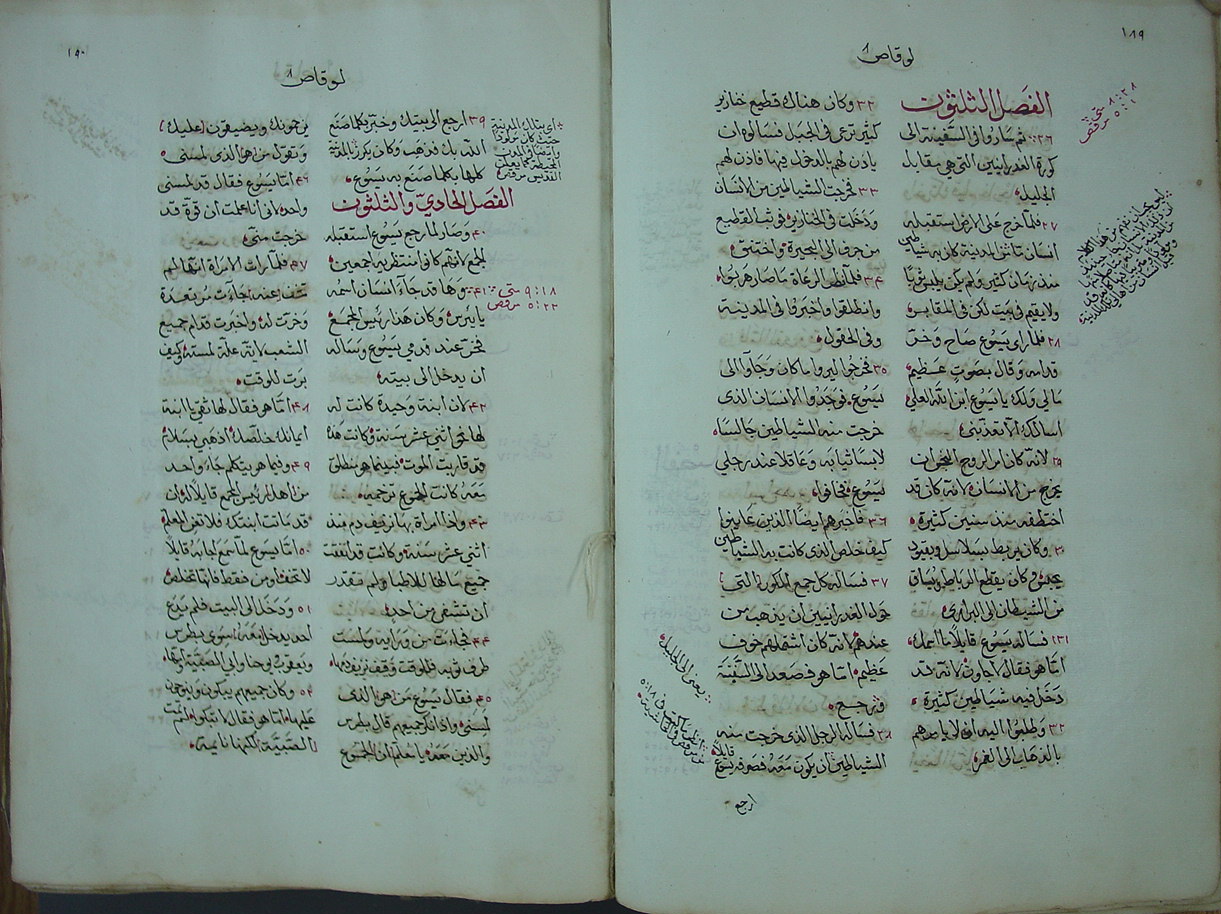 ١٨٩
لوقاص ٨
الفصل الثلثون
٢٦ ثم ساروا في السفينة الى
كورة الغدرانيين التي هي مقابل
الجليل
٢٧ فلما خرج على الارض استقبله
انسان من المدينة كان به شياطين
منذ زمان كثير ولم يكن يلبس ثوبًا
ولا يقيم في بيت لكن في المقابر
٢٨ فلما رأى يسوع صاح وخرّ
قدامه وقال بصوت عظيم
ما لي ولك يا يسوع ابن الله العلي
اسالك الا تعذبني
٢٩ لانه كان امر الروح النجس ان
يخرج من الانسان لانه كان قد
اختطفه منذ سنين كثيرة
٣٠ وكان يربط بسلاسل وبقيود
يحبس وكان يقطع الرباط ويساق
من الشيطان الى البراري
٣١ فساله يسوع قايلا ما اسمك
اما هو فقال لجاون لانه قد
دخل فيه شياطين كثيرة
٣٢ وطلبوا اليه أن لا يامرهم
بالذهاب الى الغمر
٣٢ وكان هناك قطيع خنازير
كثير ترعى في الجبل فسالوه ان
ياذن لهم بالدخول فيها فاذن لهم
٣٣ فخرجت الشياطين من الانسان
ودخلت في الخنازير فوثب القطيع
من جرف الى البحيرة واختنق
٣٤ فلما نظر الرعاة ما صار هربوا
وانطلقوا واخبروا في المدينة
وفي الحقول
٣٥ فخرجوا ليروا ما كان وجاوا الى
يسوع فوجدوا الانسان الذي
خرجت منه الشياطين جالسا
لابسا ثيابه وعاقلا عند رجلي
يسوع فخافوا
٣٦ فاخبرهم ايضا الذين عاينوا
كيف خلص الذي كانت به الشياطين
٣٧ فساله كل جمع المكورة التي
حول الغدرانيين ان يذهب من
عندهم لانه كان اشملهم خوف
عظيم اما هو فصعد الى السفينة
ورجع
٣٨ فساله الرجل الذي خرجت منه
الشياطين ان يكون معه فصرفه يسوع
قايلا
ارجع
٨:٢٨ متى
٥:١ مرقص
يعني الى الجليل
١٩٠
لوقاص ٨
٣٩ ارجع الى بيتك وخبر بكلما صنع
الله بك فذهب وكان يكرز بالمدينة
كلها بكلما صنع به يسوع
الفصل الحادي والثلثون
٤٠ وصار لما رجع يسوع استقبله
الجمع لانهم كانوا منتظريه اجمعين
٤١ وها قد جاء انسان اسمه
يايرس وكان هذا رئيس المجمع
فخرّ عند قدمي يسوع وساله
ان يدخل الى بيته
٤٢ لان ابنة وحيدة كانت له
لها نحو اثني عشر سنة وكانت هذه
قد قاربت الموت فبينما هو ينطلق
معه كانت الجموع تزحمه
٤٣ واذا امراة بها نزيف دم منذ
اثني عشر سنة وكانت قد انفقت
جميع مالها للاطبا ولم تقدر
أن تشفى من احد
٤٤ فجاءت من ورايه ولمست
طرف ثوبه فللوقت وقف نزيف دمها
٤٥ فقال يسوع من هو الذي
لمسني واذ انكر جميعهم قال بطرس
والذين معه يا معلم ان الجموع
يزحمونك ويضيقون عليك
وتقول من هو الذي لمسني
٤٦ امّا يسوع فقال قد لمسني
واحد لاني انا علمت ان قوة قد
خرجت مني
٤٧ فلما رات الامراة انها لم
تخف عنه جاءت مرتعدة
وخرت له واخبرت قدام جميع
الشعب لاية علة لمسته وكيف
برت للوقت
٤٨ امّا هو فقال لها ثقي يا ابنة
ايمانك خلصك اذهبي بسلام
٤٩ وفيما هو يتكلم جاء واحد
من اهل رئيس المجمع قايلا له ان
قد ماتت ابنتك فلا تعن المعلم
٥٠ امّا يسوع لما سمع اجابه قائلا
لا تخف امن فقط فانها تخلص
٥١ ودخل الى البيت فلم يدع
احد يدخل معه سوى بطرس
ويعقوب ويوحنا وابي الصبية وامّها
٥٢ وكان جميعهم يبكون وينوحون
عليها امّا هو فقال لا تبكوا لم تمت
الصبية لكنها نايمة
٩:١٨ متى
٥:٢٢ مرقص